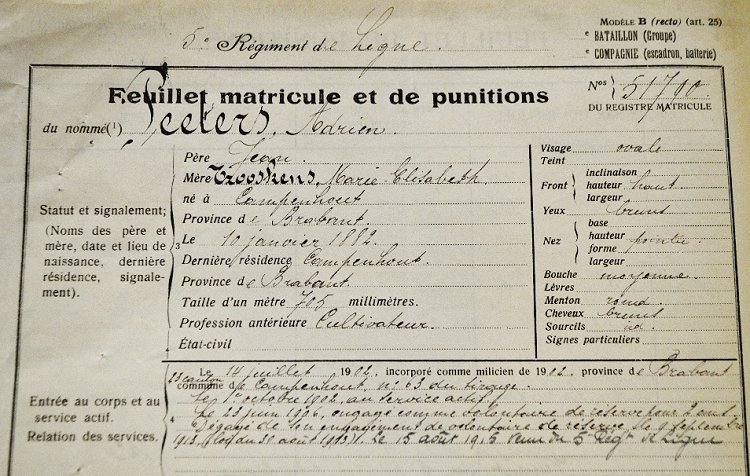 MODÈLE B (recto) (art. 25)
5e Régiment de Ligne.
e BATAILLON (Groupe)
e COMPAGNIE (escadron, batterie)
Feuillet matricule et de punitions
Nos 51700
DU REGISTRE MATRICULE
du nommé(1) Peeters, Adrien.
Statut et signalement;
(Noms des père et
mère, date et lieu de
naissance, dernière
résidence, signale-
ment).
3
Père Jean.
Mère Trooskens, Marie Elisabeth
né à Campenhout
Province de Brabant.
Le 10 janvier 1882.
Dernière résidence Campenhout.
Province de Brabant.
Taille d'un mètre 705 millimètres.
Profession antérieure Cultivateur.
État-civil
Visage ovale
Teint
Front inclinaison
hauteur haut
largeur
Yeux bruns
Nez base
hauteur
forme pointu
largeur
Bouche moyenne
Lèvres
Menton rond
Cheveux bruns
Sourcils id
Signes particuliers
Entrée au corps et au
service actif.
Relation des services.
4
Le 14 juillet 1902, incorporé comme milicien de 1902, province de Brabant
23 canton commune de Campenhout, n° 63 du tirage.
Le 1r octobre 1902, au service actif.
Le 23 juin 1906, engagé comme volontaire de réserve pour 2 ans
Dégagé de son engagement de volontaire de réserve, le 9 septembre
1913, (loi du 30 août 1913). Le 15 août 1915 venu du 5 Régt de Ligne